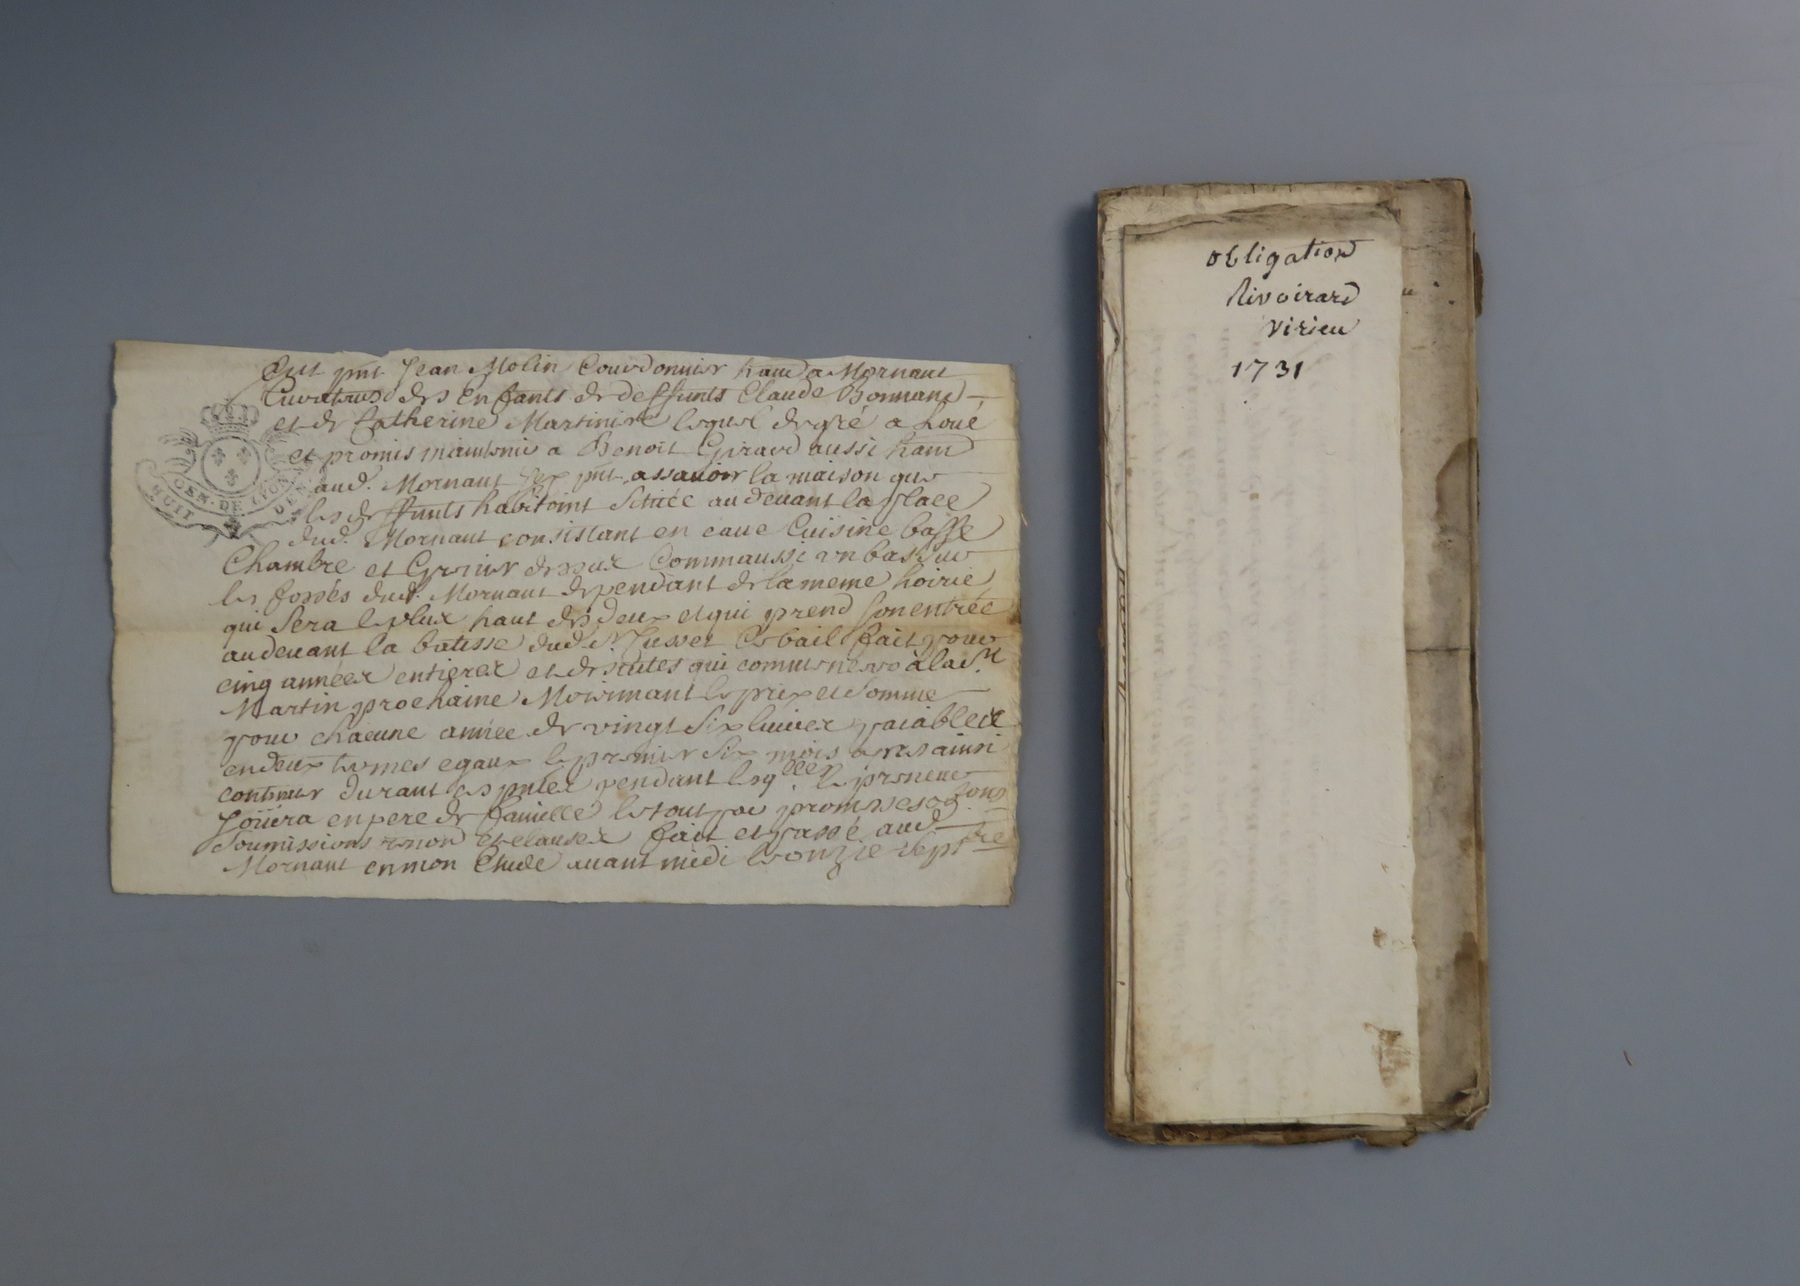 Fut pnt Jean Molin Courdonnier hant a Mornant
Curateur des enfants de deffunts Claude Bonnand
et de Catherine Martiniere lequel de gré a Loué
et promis maintenir a Benoit Girard aussi hant
aud. Mornant pnt assavoir la maison que
les deffunts habitoint Sittée au devant la place
dud. Mornant consistant en cave Cuisine basse
Chambre et Grenier dessus Commaussi un bas sur
les fossés dud. Mornant dependant de la meme hoirie
qui Sera le plus haut des deux et qui prend son entrée
au devant la batisse dud. Sr. Cusset Ce bail fait pour
cinq années entieres et de suites qui commencero a la St
Martin prochaine Moienant le prix et Somme
pour chacune année de vingt Six livres paiables
en deux termes egaux le premier Six mois apres ainsi
continuer durant
Joüira en pere de famille le tout par promesses oblig.ons
Soumissions renon et clauses fait et passé aud.
Mornant en mon Etude avant midi le onzie septbre
HUIT DEN.
GEN. DE LYON
obligation
Rivoirard
Virieu
1731